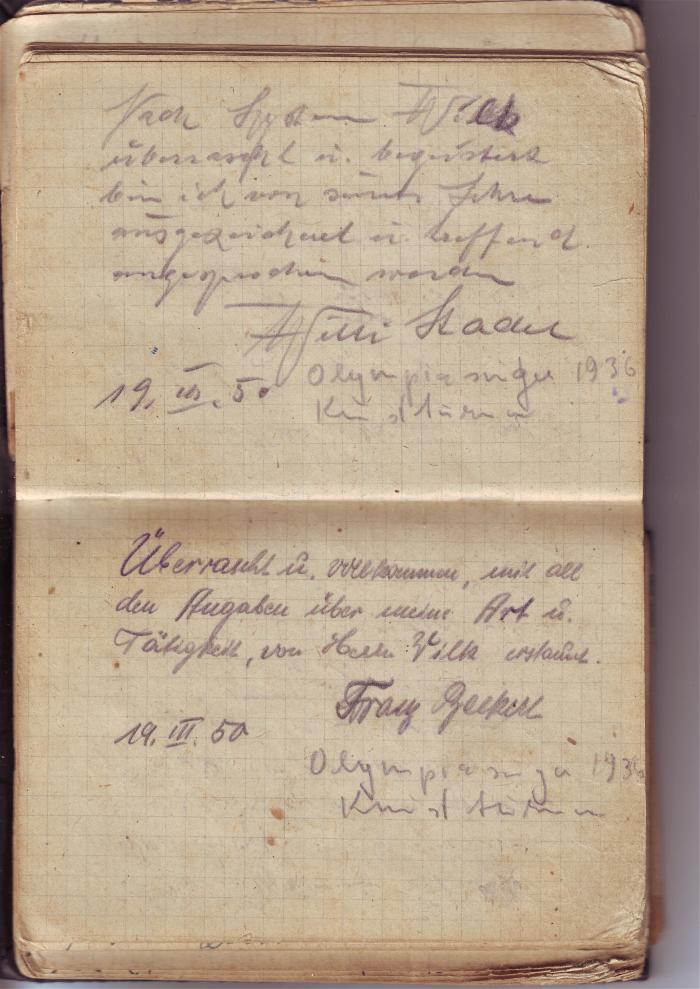 Nach System Wilk
überrascht u. begeistert
bin ich von seiner Lehre
ausgezeichnet u. treffend
angesprochen worden
Willi Stadel
19. III. 50
Olympiasieger 1936
Kunstturnen
Überrascht u. vollkommen, mit all
den Angaben über meine Art u.
Tätigkeit, von Herrn Wilk erstaunt.
Franz Beckert
19. III. 50
Olympiasieger 1936
Kunstturnen